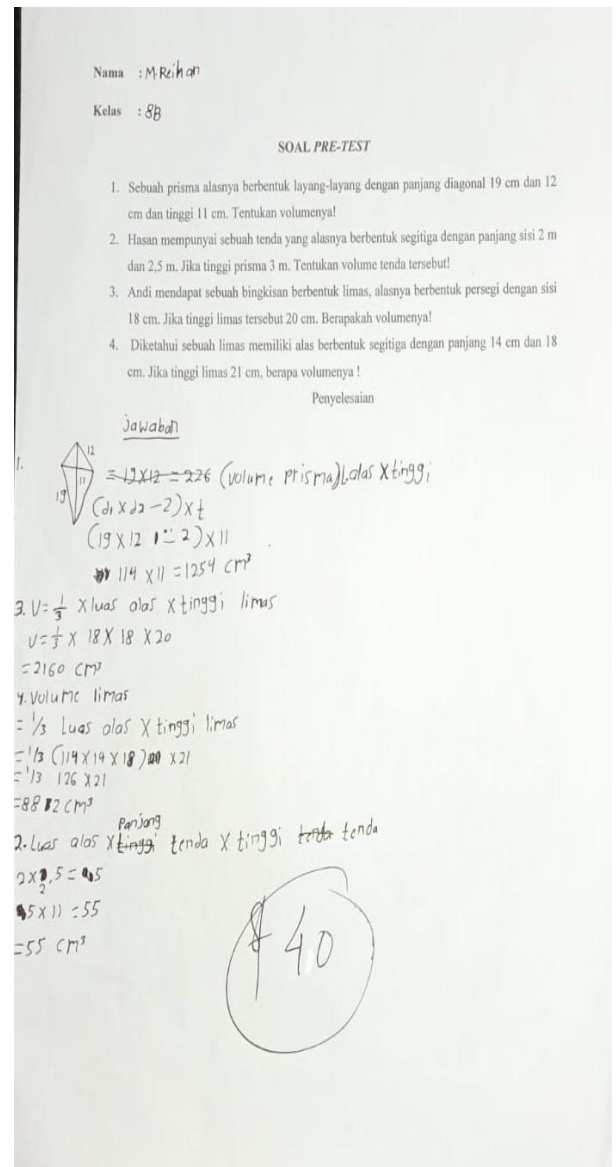 Nama : M.Reihan
Kelas : 8B
SOAL PRE-TEST
1. Sebuah prisma alasnya berbentuk layang-layang dengan panjang diagonal 19 cm dan 12
cm dan tinggi 11 cm. Tentukan volumenya!
2. Hasan mempunyai sebuah tenda yang alasnya berbentuk segitiga dengan panjang sisi 2 m
dan 2,5 m. Jika tinggi prisma 3 m. Tentukan volume tenda tersebut!
3. Andi mendapat sebuah bingkisan berbentuk limas, alasnya berbentuk persegi dengan sisi
18 cm. Jika tinggi limas tersebut 20 cm. Berapakah volumenya!
4. Diketahui sebuah limas memiliki alas berbentuk segitiga dengan panjang 14 cm dan 18
cm. Jika tinggi limas 21 cm, berapa volumenya !
Penyelesaian
Jawaban
1.
12
11
19
= 19x12 = 226 (volume prisma) L.alas x tinggi
(d1 x d2 - 2) x t
(19 x 12 : 2) x 11
114 x 11 = 1254 cm³
3. V = 1/3 x luas alas x tinggi limas
V = 1/3 x 18 x 18 x 20
= 2160 cm³
4. Volume limas
= 1/3 Luas alas x tinggi limas
= 1/3 (114 x 14 x 18) x 21
= 1/3 126 x 21
= 882 cm³
Panjang
2. Luas alas x tinggi tenda x tinggi tenda tenda
2 x 2,5 = 5
5 x 11 = 55
= 55 cm³
40